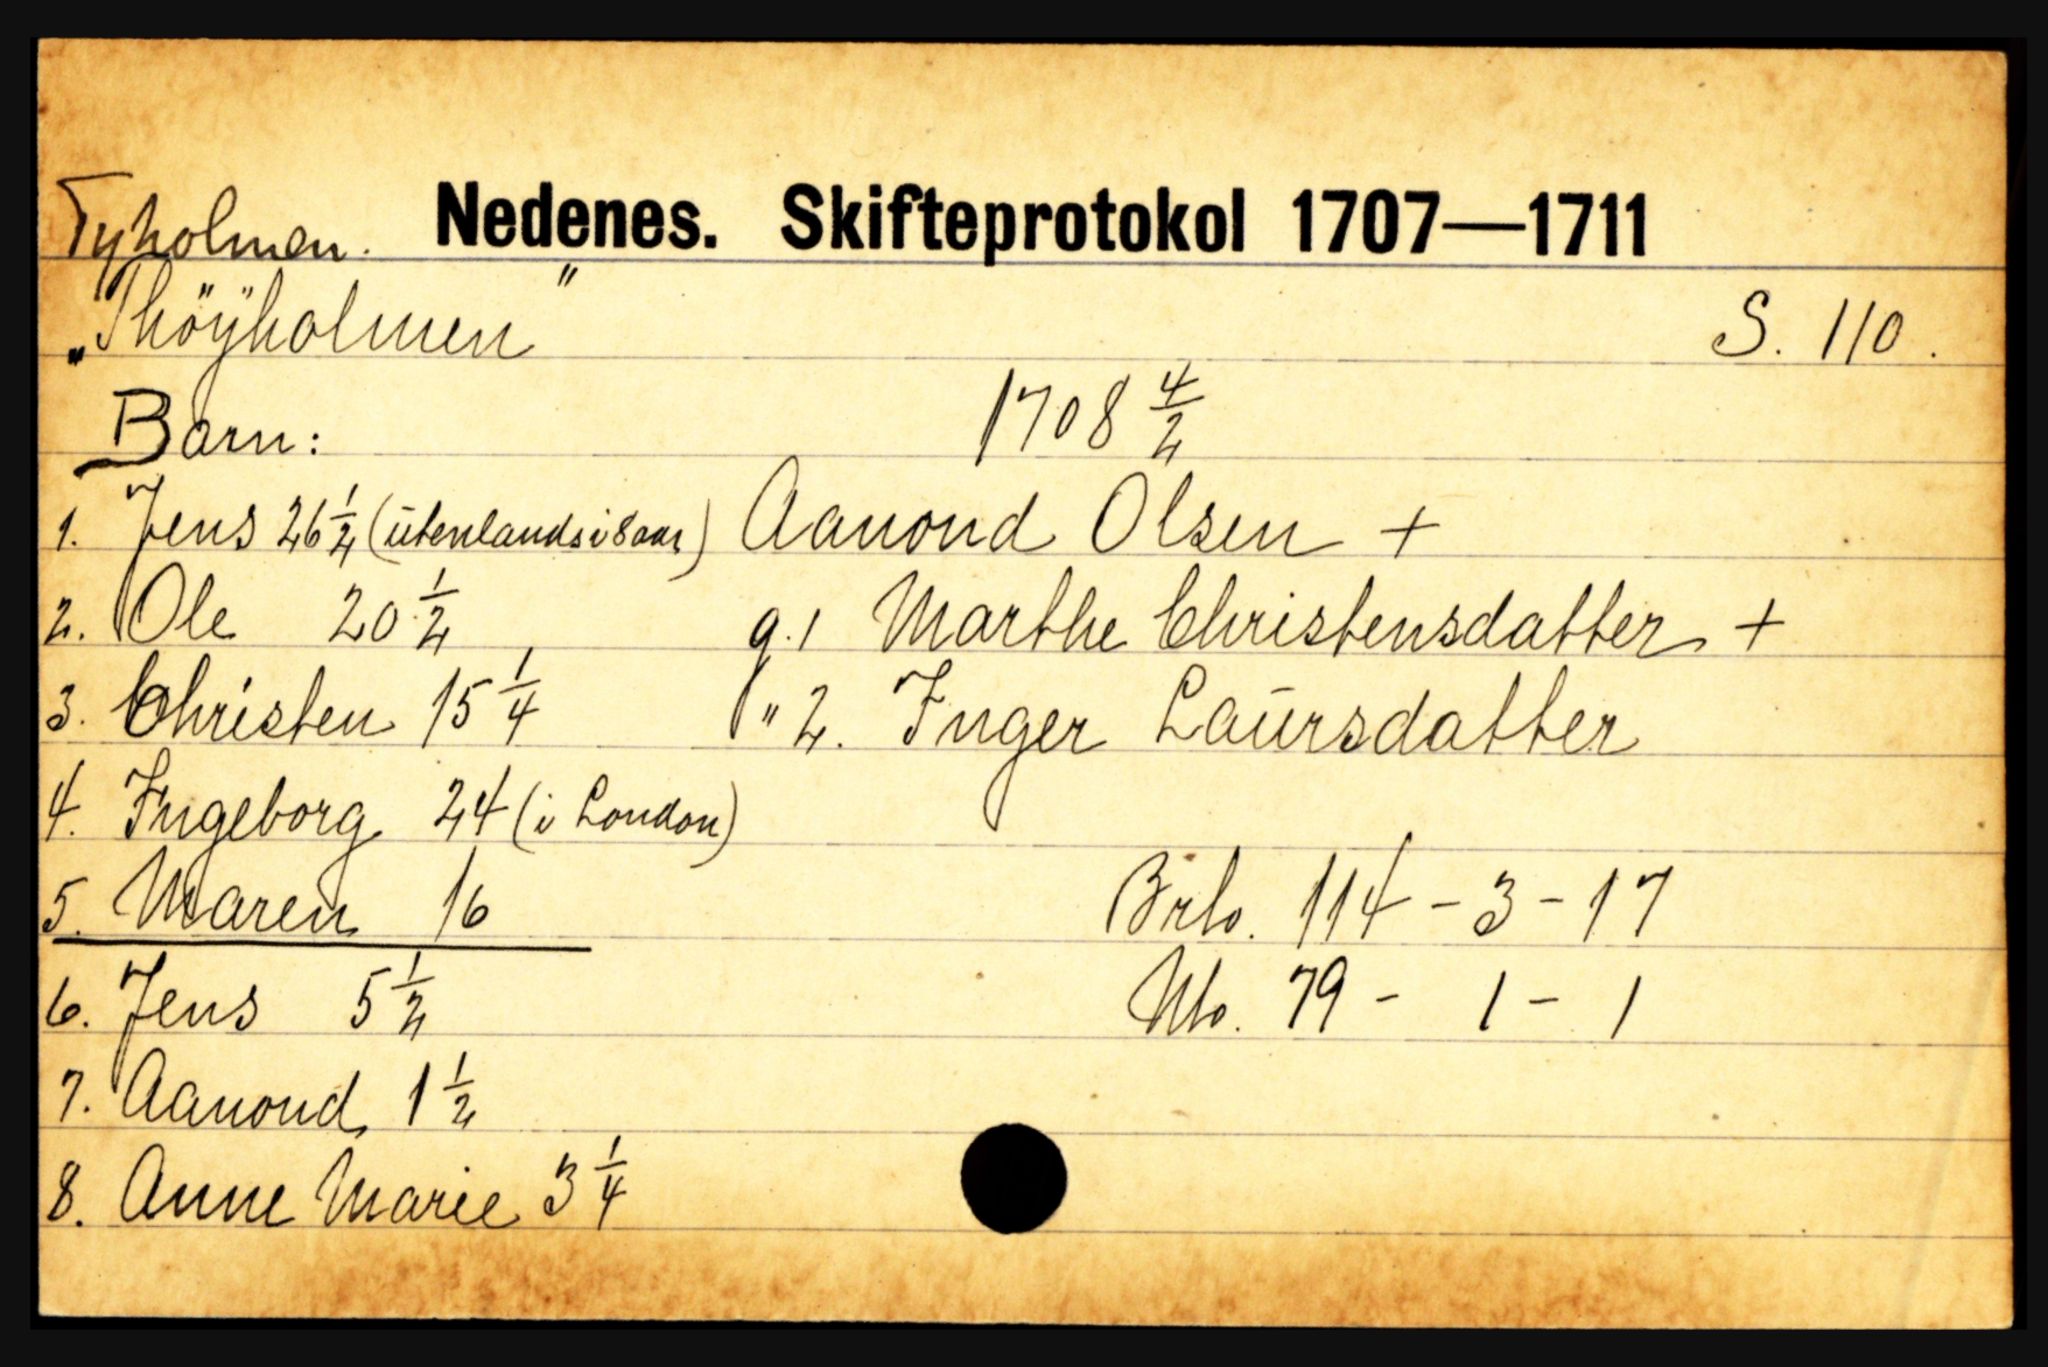 Tyholmen. Nedenes. Skifteprotokol 1707—1711
„Thöÿholmen" S. 110.
Barn: 1708 4/2
1. Jens 26 1/2 (ūtenlands i 8 aar) Aanond Olsen +
2. Ole 20 1/2 g. 1 Marthe Christensdatter +
3. Christen 15 1/4 " 2. Inger Laūrsdatter
4. Ingeborg 24 (i London)
5. Maren 16 Brlo. 114 - 3 - 17
6. Jens 5 1/2 Nlo. 79 - 1 - 1
7. Aanond 1 1/2
8. Anne Marie 3 1/4